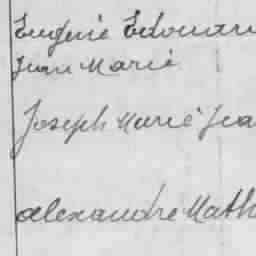 Eugénie Edouar
Jean Marie
Joseph Marie Jea
Alexandre Math